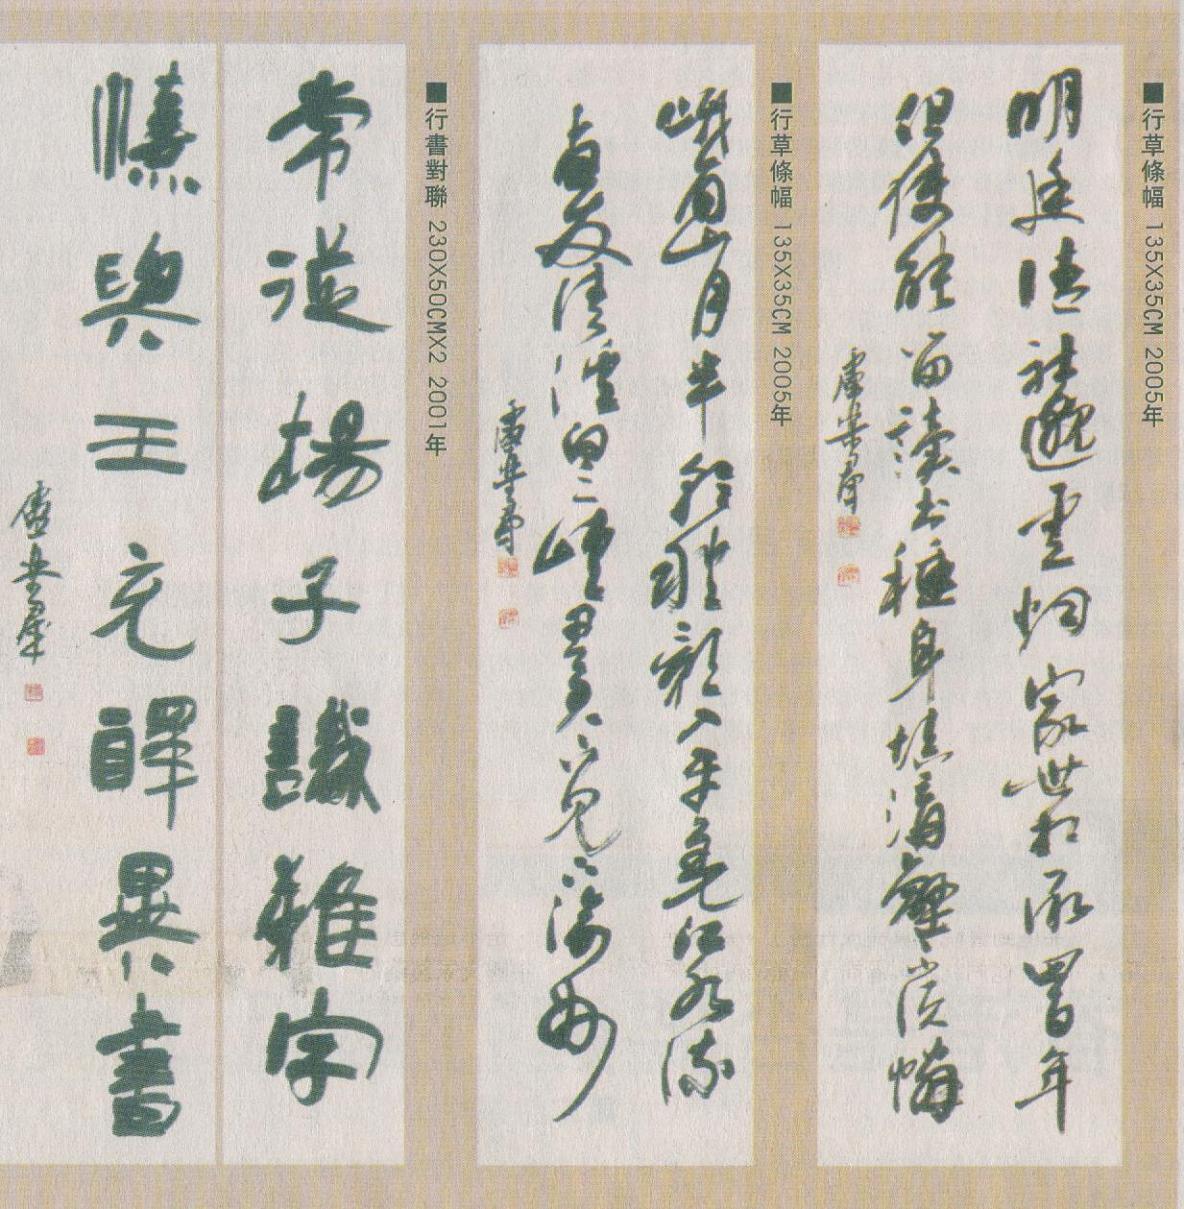 ■行草條幅 135X35CM 2005年
明廷清秘邈雲烟家世相承四百年
但使能留讀書種身填溝壑不須憐
盧樂群
■行草條幅 135X35CM 2005年
峨眉山月半輪秋影入平羌江水流
夜發清溪向三峽思君不見下渝州
盧樂群
■行書對聯 230X50CMX2 2001年
常從揚子識字
與王充譯異書
盧樂群